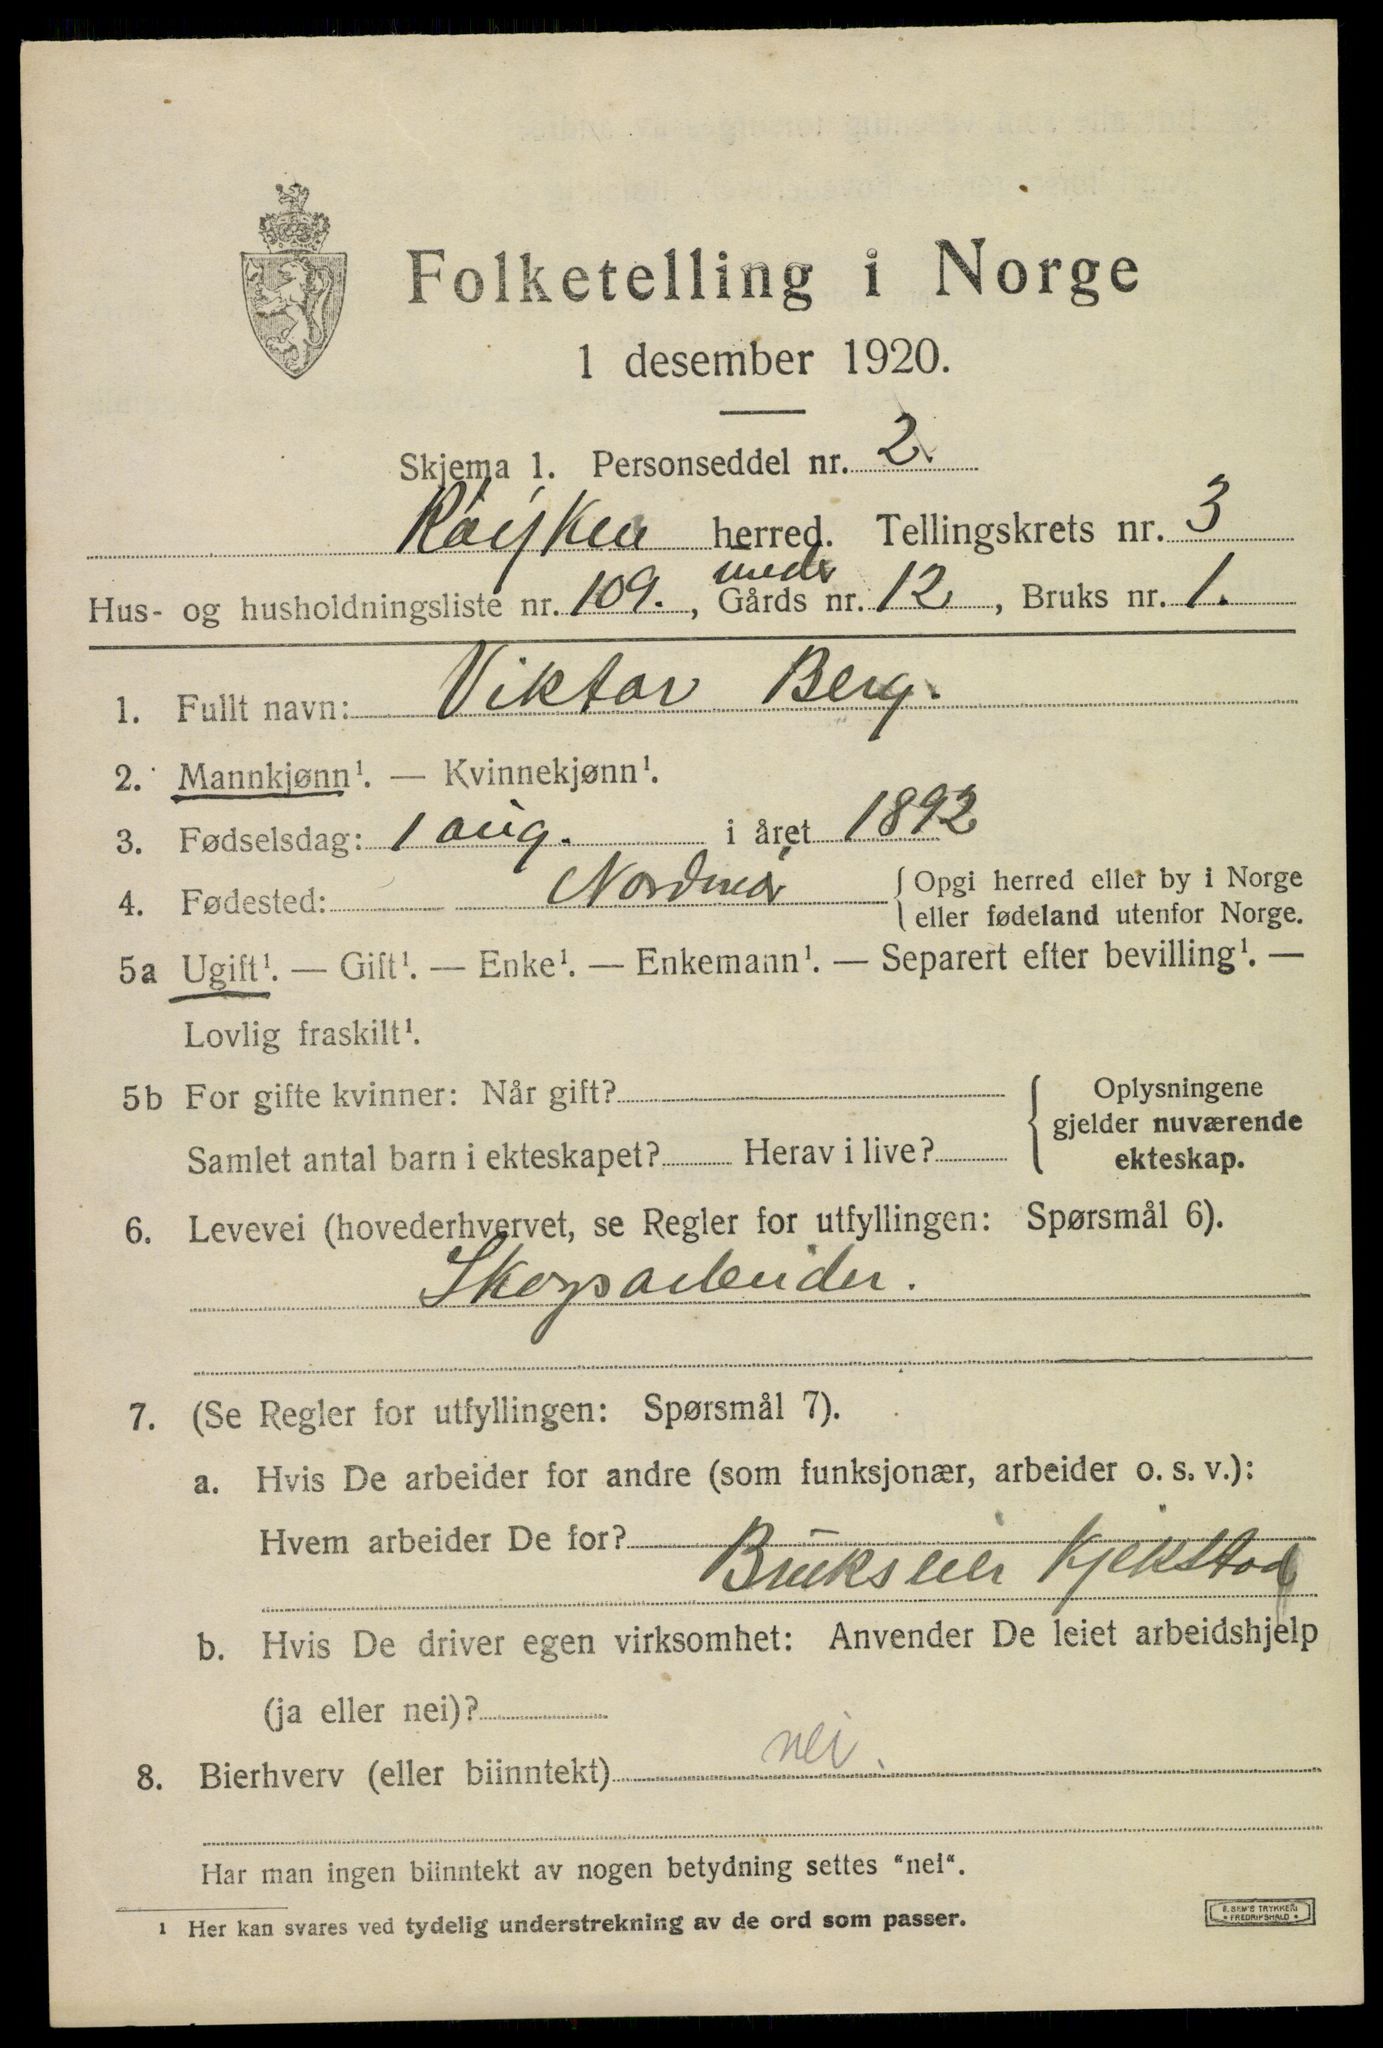 Folketelling i Norge
1 desember 1920.
Skjema 1. Personseddel nr. 2.
Røyken herred. Tellingskrets nr. 3
under
Hus- og husholdningsliste nr. 109. , Gårds nr. 12 , Bruks nr. 1.
1. Fullt navn: Viktor Berg.
2. Mannkjønn¹. — Kvinnekjønn¹.
3. Fødselsdag: 1 aug. i året 1892
4. Fødested: Nordmør { Opgi herred eller by i Norge
eller fødeland utenfor Norge.
5a Ugift¹. — Gift¹. — Enke¹. — Enkemann¹. — Separert efter bevilling¹. —
Lovlig fraskilt¹.
5b For gifte kvinner: Når gift?
Samlet antal barn i ekteskapet? Herav i live?
{ Oplysningene
gjelder nuværende
ekteskap.
6. Levevei (hovederhvervet, se Regler for utfyllingen: Spørsmål 6).
Skogsarbeider.
7. (Se Regler for utfyllingen: Spørsmål 7).
a. Hvis De arbeider for andre (som funksjonær, arbeider o. s. v.):
Hvem arbeider De for?
Brukseier Kjekstad
b. Hvis De driver egen virksomhet: Anvender De leiet arbeidshjelp
(ja eller nei)?
8. Bierhverv (eller biinntekt) nei.
Har man ingen biinntekt av nogen betydning settes "nei".
¹ Her kan svares ved tydelig understrekning av de ord som passer.
E. SEM'S TRYKKERI
* FREDRIKSHALD *